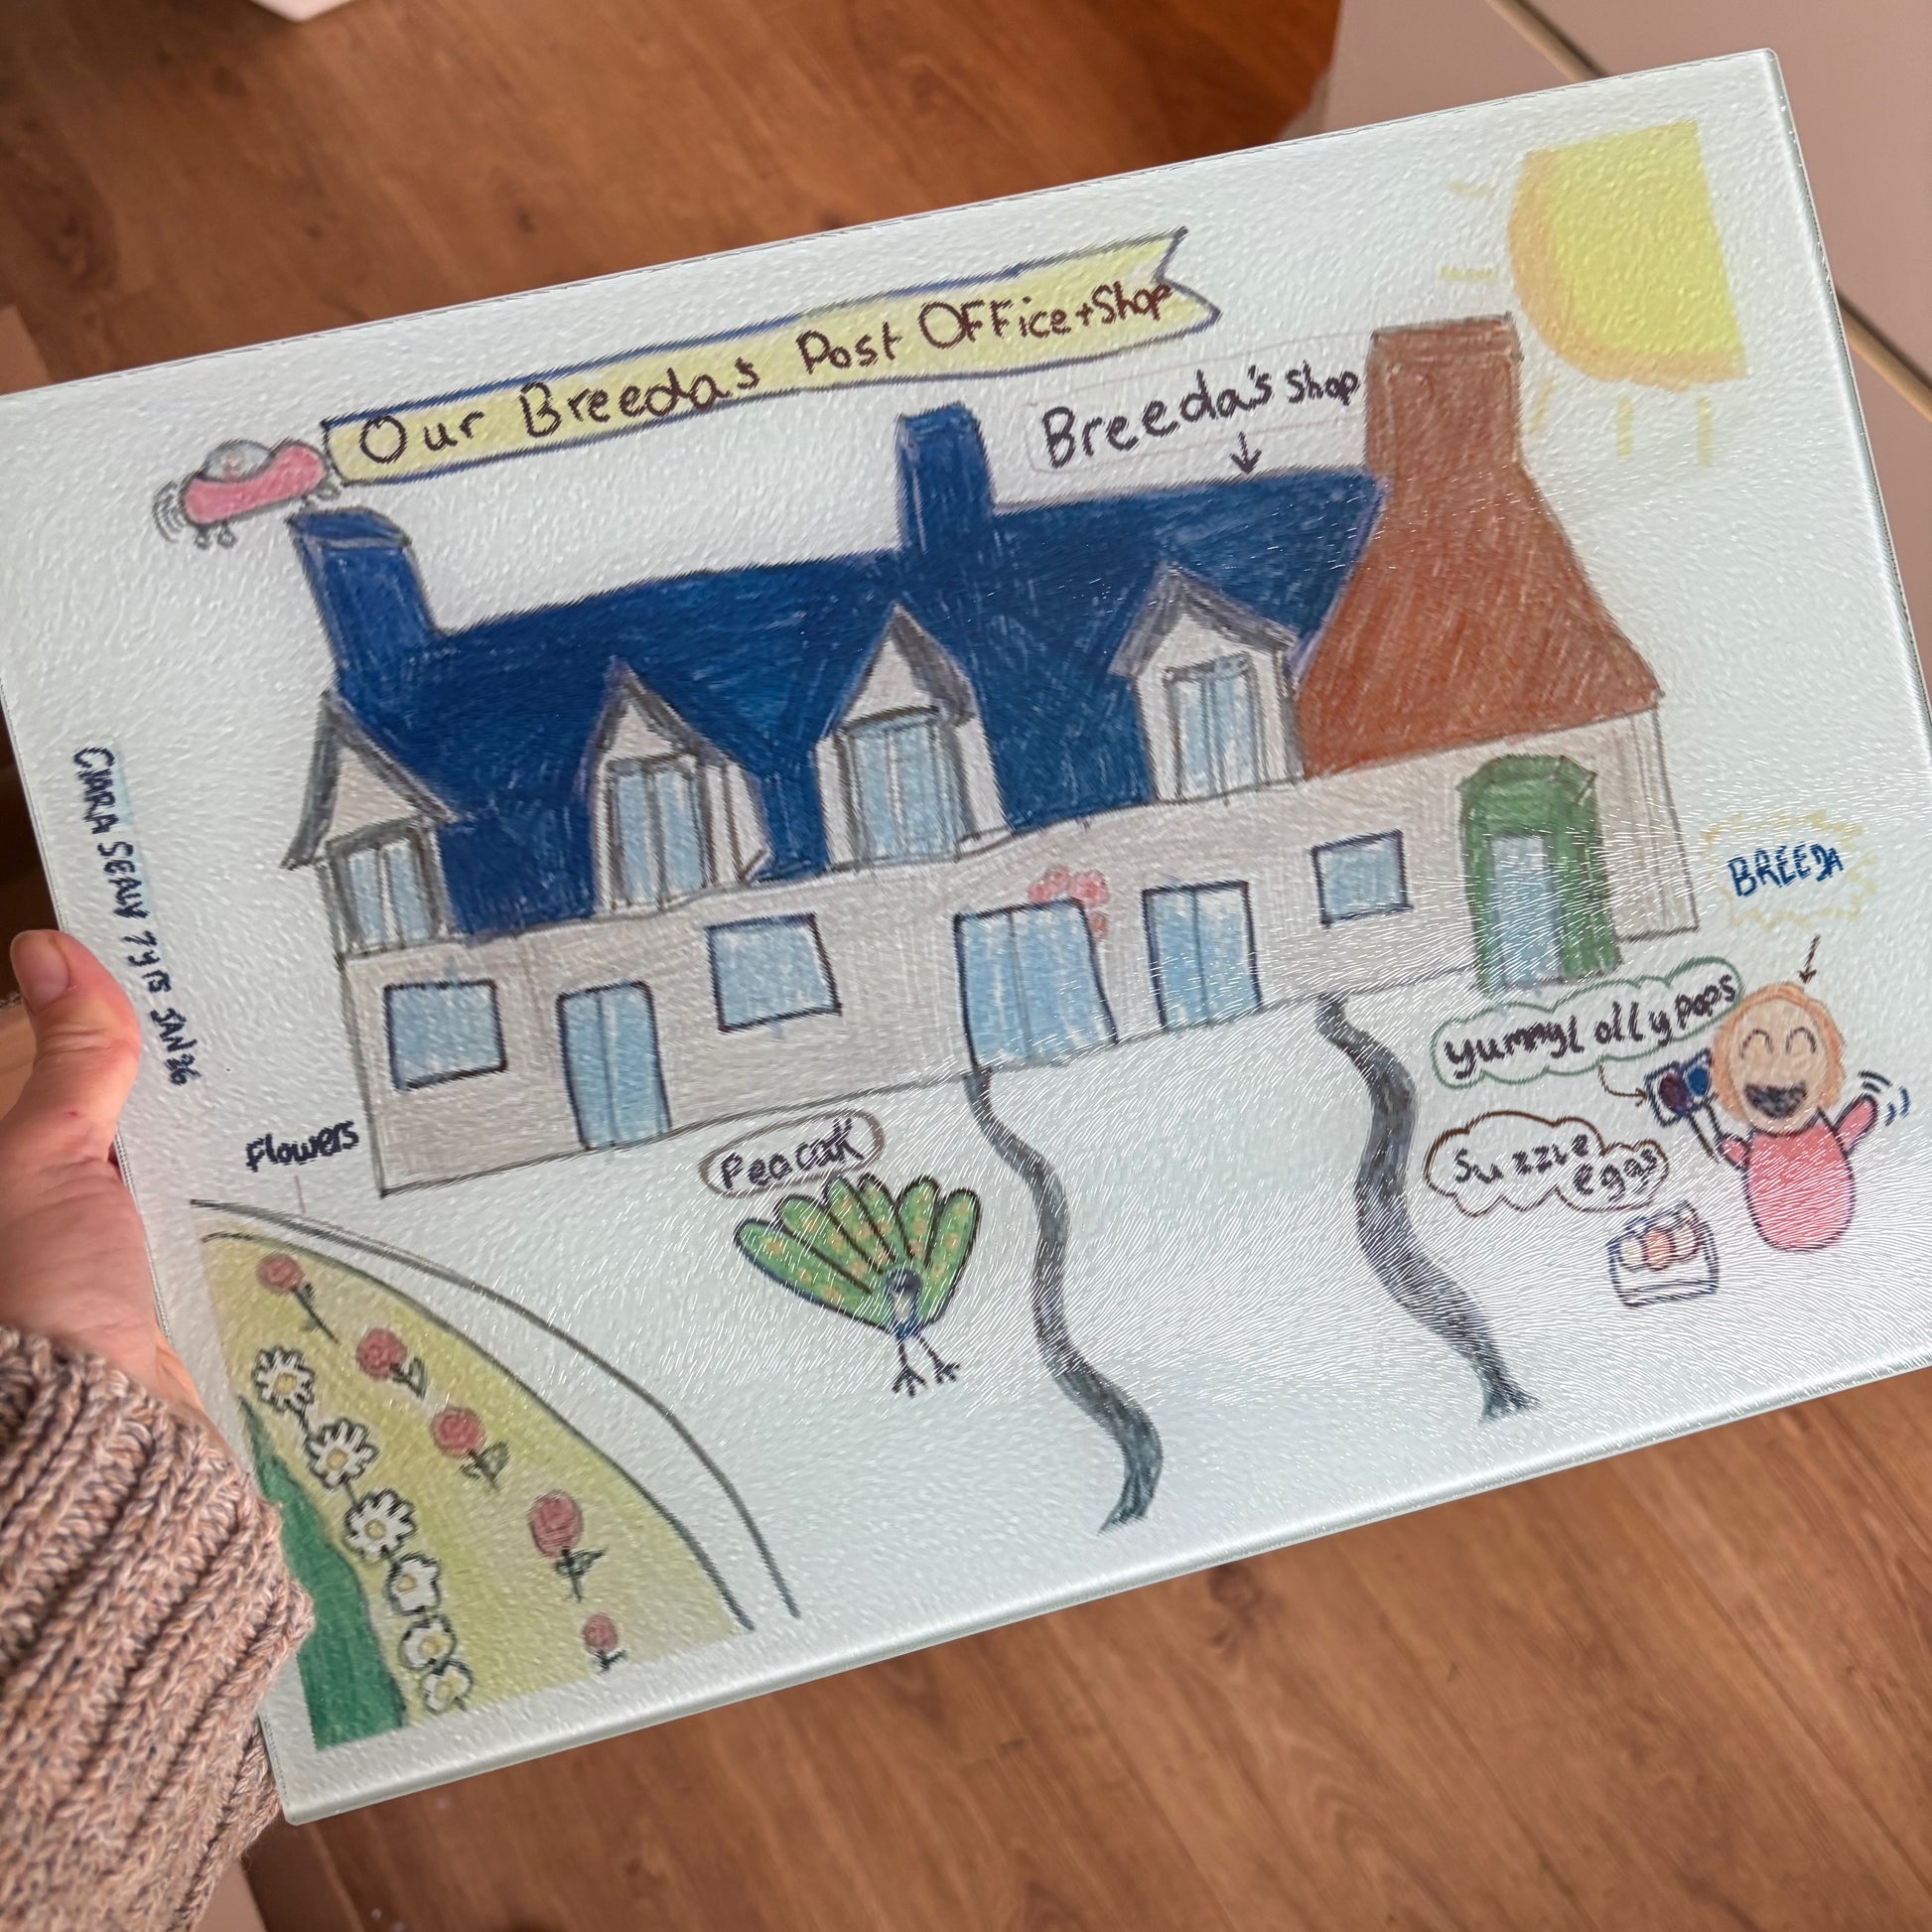 Our Breeda's Post OFFice+Shop
Breeda's Shop
BREEDA
yummy Lollypops
Suzzie
eggs
Peacock
Flowers
CIARA SEALY 7yrs JAN 26